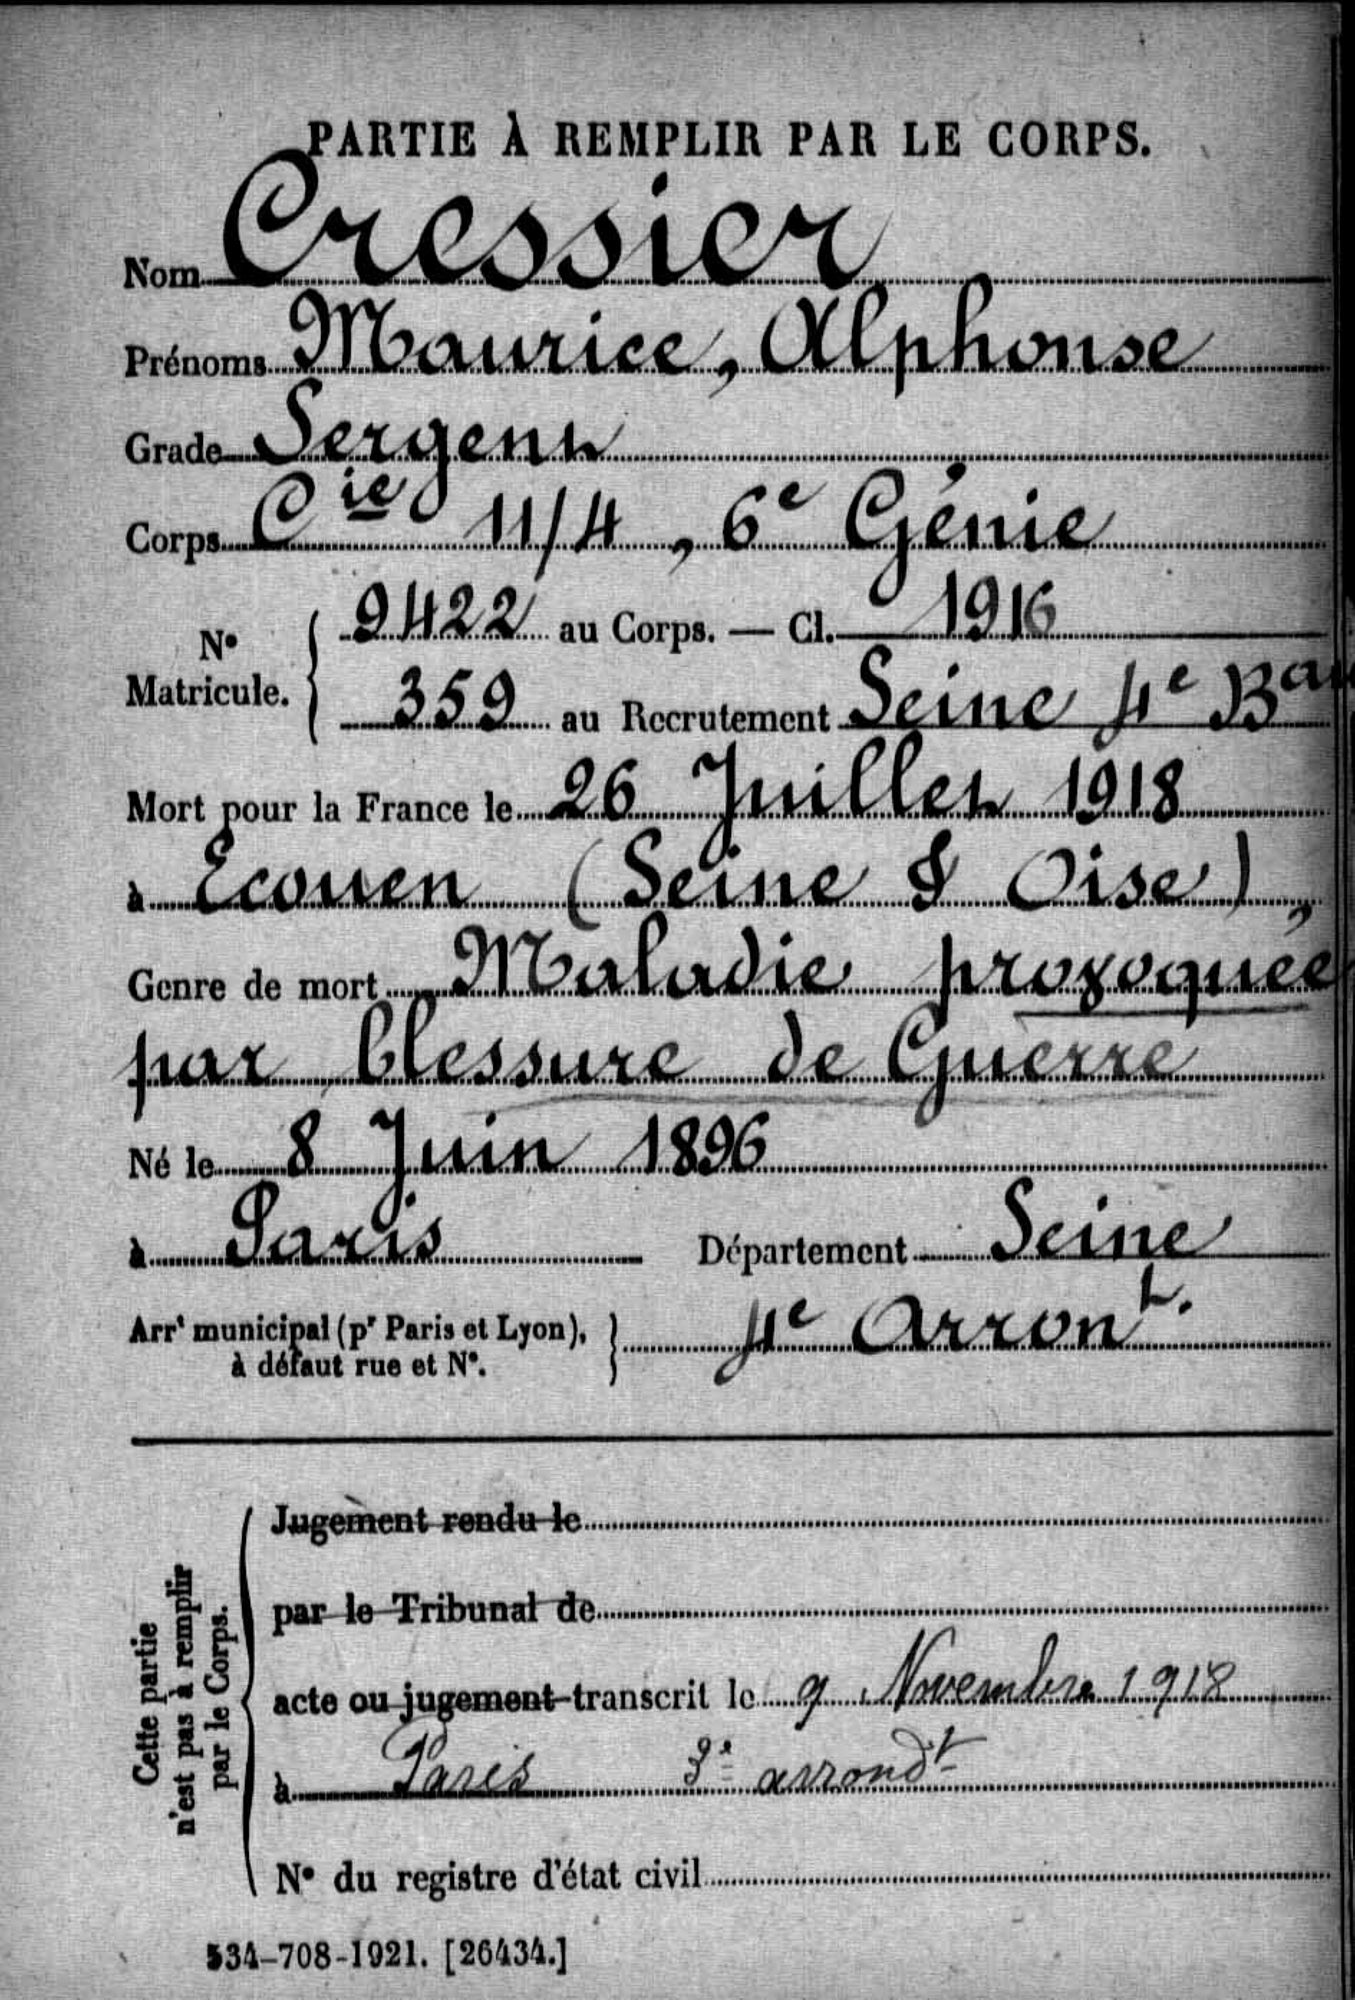 PARTIE À REMPLIR PAR LE CORPS.
Nom Cressier
Prénoms Maurice, Alphonse
Grade Sergent
Corps Cie 11/4, 6e Génie
N° Matricule. 9422 au Corps. — Cl. 1916
359 au Recrutement Seine 4e Bau
Mort pour la France le 26 Juillet 1918
à Ecouen (Seine & Oise),
Genre de mort Maladie provoquée
par blessure de Guerre
Né le 8 Juin 1896
à Paris Département Seine
Arrt municipal (pr Paris et Lyon), à défaut rue et N°. 4e Arront.
Cette partie n'est pas à remplir par le Corps.
Jugement rendu le
par le Tribunal de
acte ou jugement transcrit le 9 Novembre 1918
à Paris 3e arrondt
N° du registre d'état civil
534-708-1921. [26434.]